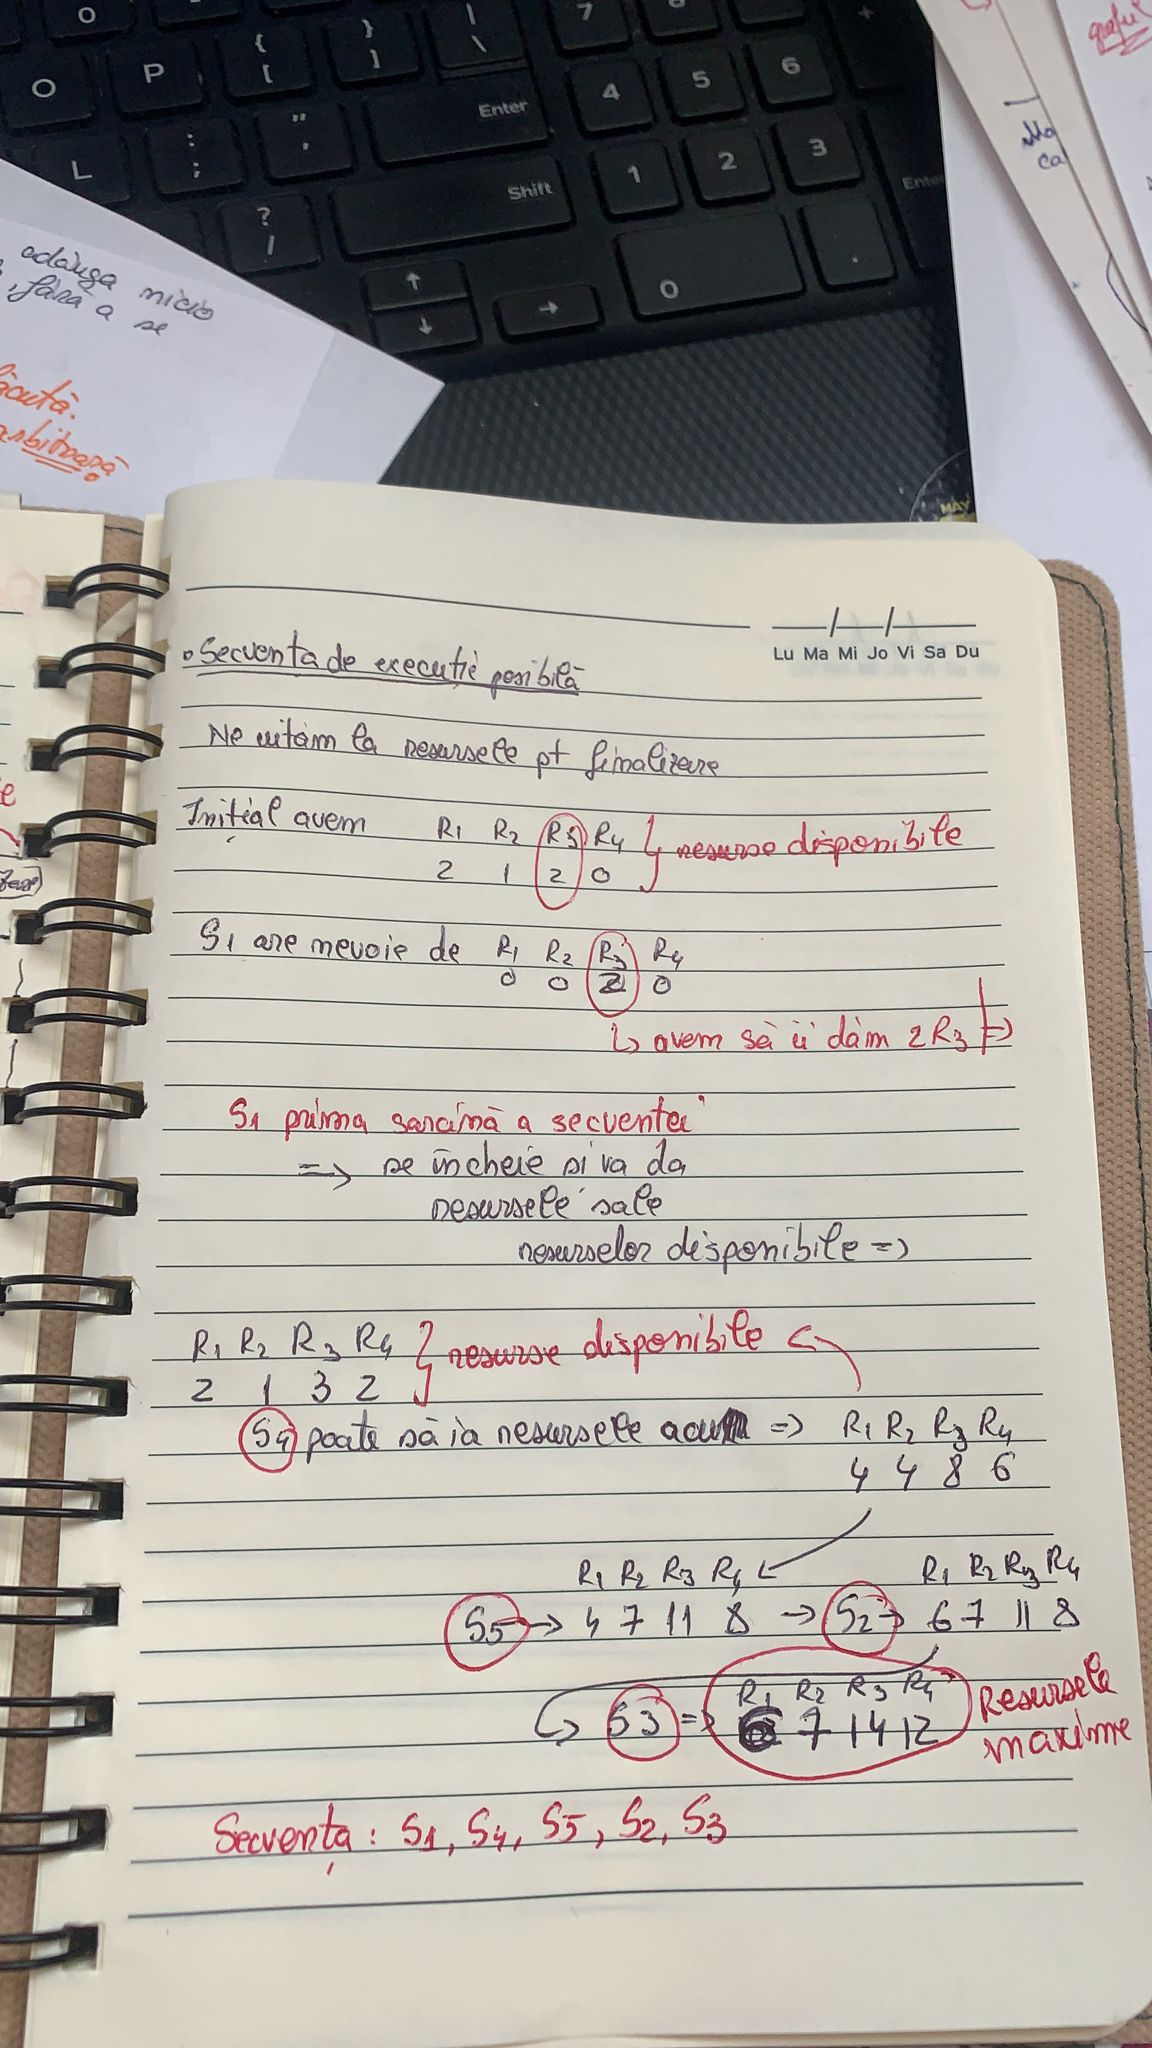 O P { [ } ] | \ 7 8 +
Enter 4 5 6
L : ; " ' Shift 1 2 3
Enter
? / ↑ ↓ → 0 .
adăuga nicio
, fără a se
ăcută.
arbitrară
grafu
Ma
ca
MAY
Lu Ma Mi Jo Vi Sa Du
• Secventa de execuție posibilă
Ne uităm la resursele pt finalizare
Inițial avem R1 R2 R3 R4 } resurse disponibile
2 1 2 0
S1 are nevoie de R1 R2 R3 R4
0 0 2 0
↳ avem să ii dăm 2R3 =>
S1 prima sarcină a secventei
=> se incheie si va da
resursele sale
resurselor disponibile =>
R1 R2 R3 R4 } resurse disponibile
2 1 3 2
S4 poate să ia resursele acum => R1 R2 R3 R4
4 4 8 6
R1 R2 R3 R4 R1 R2 R3 R4
S5 → 4 7 11 8 → S2 → 6 7 11 8
R1 R2 R3 R4 Resursele
S3 => 6 7 14 12 maxime
Secvența : S1, S4, S5, S2, S3